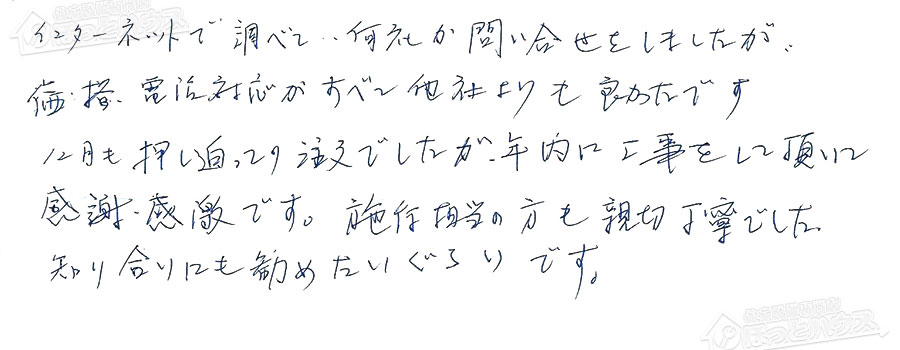 インターネットで調べて、何社か問い合せをしましたが、
価・格、電話対応がすべて他社よりも良かったです
12月も押し迫っての注文でしたが、年内に工事をして頂いて
感謝・感激です。施行担当の方も親切丁寧でした
知り合いにも勧めたいくらいです。
ほっとハウス